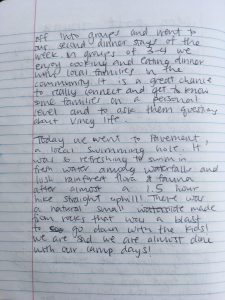 off into groups and went to
our second dinner stays of the
week. In groups of 3-4 we
enjoy cooking and eating dinner
with local families in the
community. It is a great chance
to really connect and get to know
some families on a personal
level and to ask them questions
about Vincy life.
Today we went to Pavement,
a local swimming hole. It
was so refreshing to swim in
fresh water among waterfalls and
lush rainforest flora & fauna
after almost a 1.5 hour
hike straight uphill! There was
a natural small waterslide made
from rocks that was a blast
to go down with the kids!
We are sad we are almost done
with our camp days!